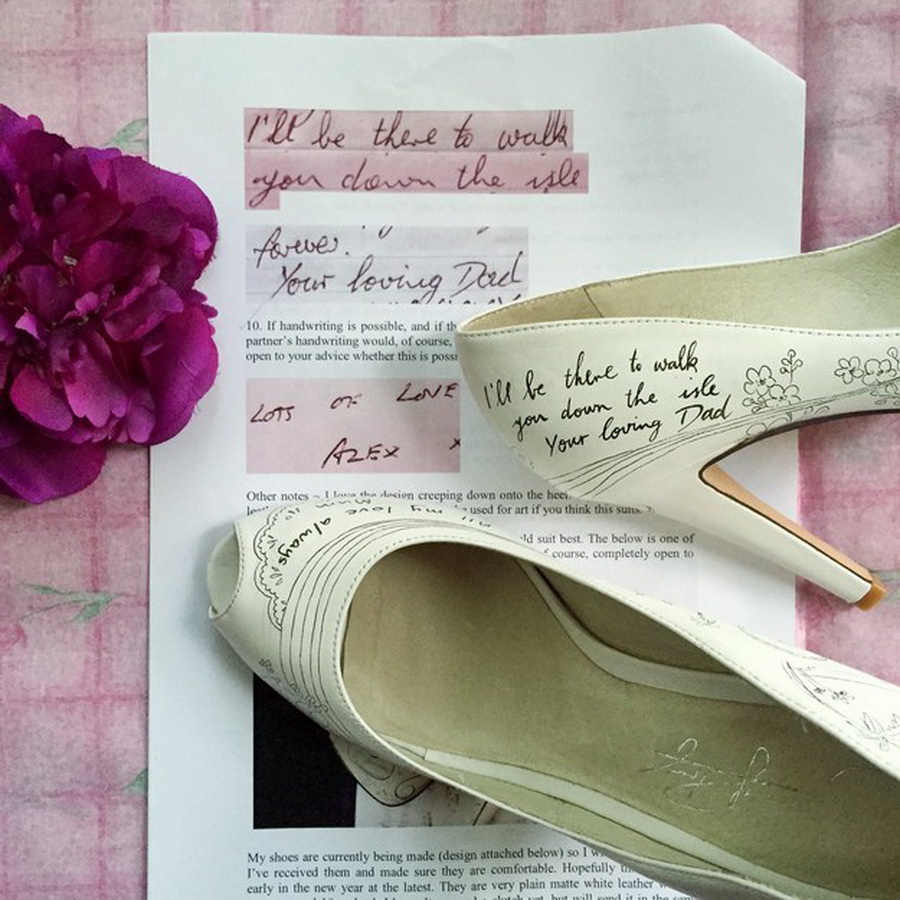 I'll be there to walk
you down the isle
forever.
Your loving Dad
10. If handwriting is possible, and if th
partner's handwriting would, of course,
open to your advice whether this is possi
LOTS OF LOVE
ALEX x
Other notes ~ I love the design creeping down onto the heel
used for art if you think this suits.
ld suit best. The below is one of
f course, completely open to
I'll be there to walk
you down the isle
Your loving Dad
all my love Mum
always
My shoes are currently being made (design attached below) so I w
I've received them and made sure they are comfortable. Hopefully
early in the new year at the latest. They are very plain matte white leather
yet, but will send it in the same